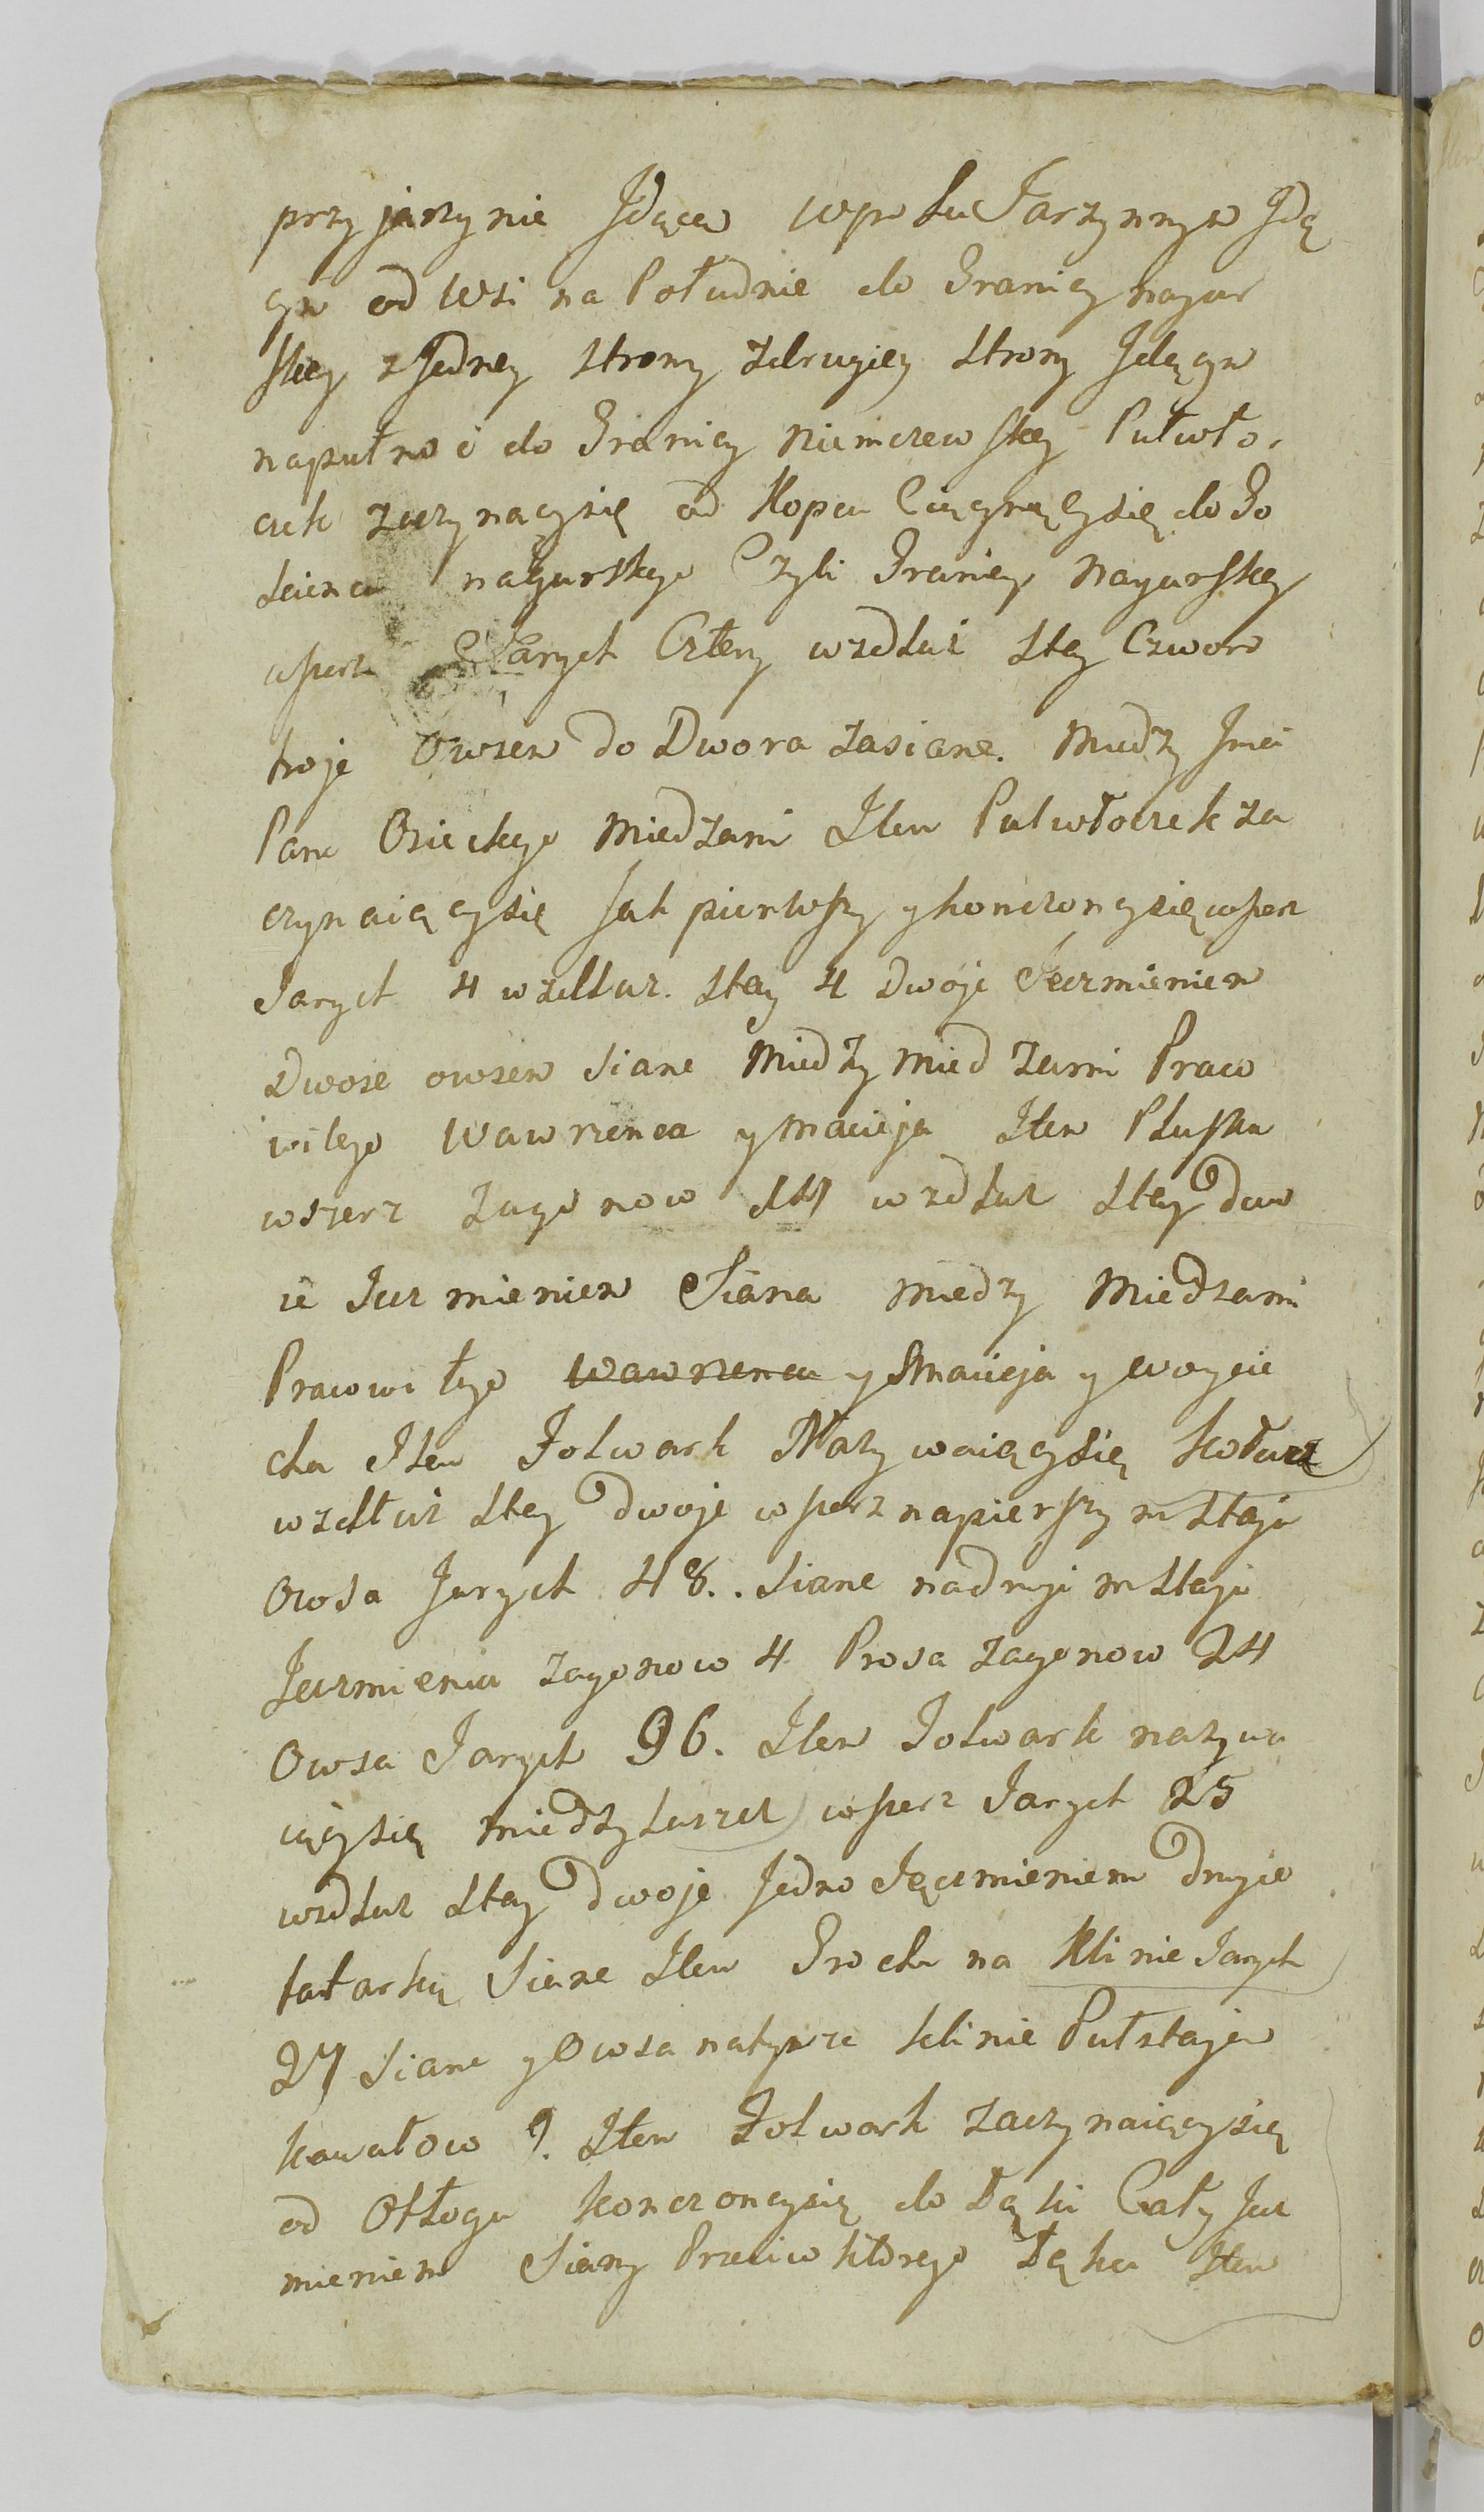 przyjarzynie Jdące w polu Jarzynnym Jdą
cym od Wsi na Południe do Granicy nagur
skiey z Jedney strony zdrugiey strony Jdącym
napułnoc do Granicy Niemczewskiey Pułwło,
czek zaczynacysię od Kopca Ciągnącysię do Go
scienca nagurskego Czyli Granicy Nagurskiey
wszerz Jarych Cztery wzdłuż stay Czworo
troje Owsem do Dwora zasiane. Miedzy Jmci
Pana Osieckego Miedzami Item Pułwłoczek za
czynaiącysię Jak pierwszy y konczoncysię wszerz
Jarych 4 wzdłuz. stay 4 Dwoje Jęczmieniem
Dwoie owsem siane Miedzy Miedzami Praco
witego Wawrzenca y Macieja Item Pluska
wszerz zagonow wzdłuz stay dwo
ie Jeczmieniem Siana Miedzy Miedzami
Pracowitego Wawrzenca y Macieja y Woycie
cha Item Folwark Nazywaiącysię Kołacz
wzdłuż stay dwoje wszerz napierszym staju
Owsa Jarych 48.. siane nadrugim staju
Jęczmienia zagonow 4 Prosa zagonow 24
Owsa Jarych 96. Item Folwark nazywa
iącysię Miedzyluszcz wszerz Jarych 25
wzdłuz stay dwoje Jedno Jęczmieniem drugie
tatarką Siane Item Grochu na Klinie Jarych
27 Siane y Owsa natymze klinie Pułstajem
kawałow 9. Item Folwark zaczynaiącysię
od Odłogu konczoncysię do Łąki Cały Jęcz
mieniem Siany Przeciw ktorego Łąka Item